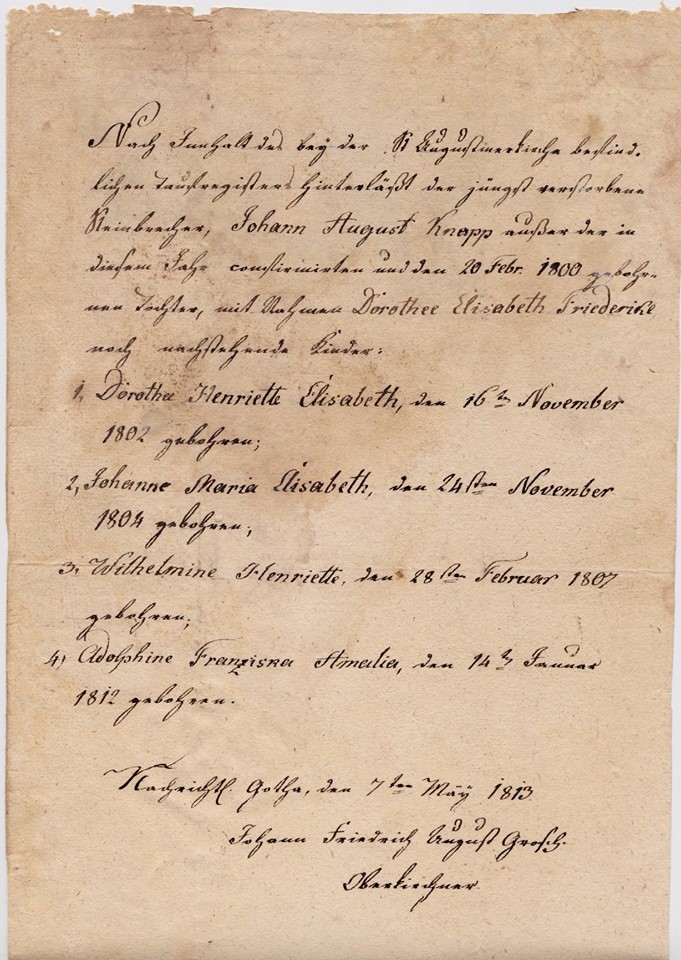 Nach Innhalt des bey der St Augustinerkirche befind-
lichen Taufregisters hinterläßt der jüngst verstorbene
Steinbrecher, Johann August Knapp außer der in
diesem Jahr confirmirten und den 20 Febr. 1800 gebohr-
nen Tochter, mit Nahmen Dorothee Elisabeth Friederike
noch nachstehende Kinder:
1, Dorothee Henriette Elisabeth, den 16tn November
1802 gebohren;
2, Johanne Maria Elisabeth, den 24sten November
1804 gebohren;
3, Wilhelmine Henriette, den 28sten Februar 1807
gebohren;
4, Adolphine Franziska Amalia, den 14tn Januar
1812 gebohren.
Nachrichtl. Gotha, den 7ten Mäÿ 1813
Johann Friedrich August Grosch.
Oberkirchner